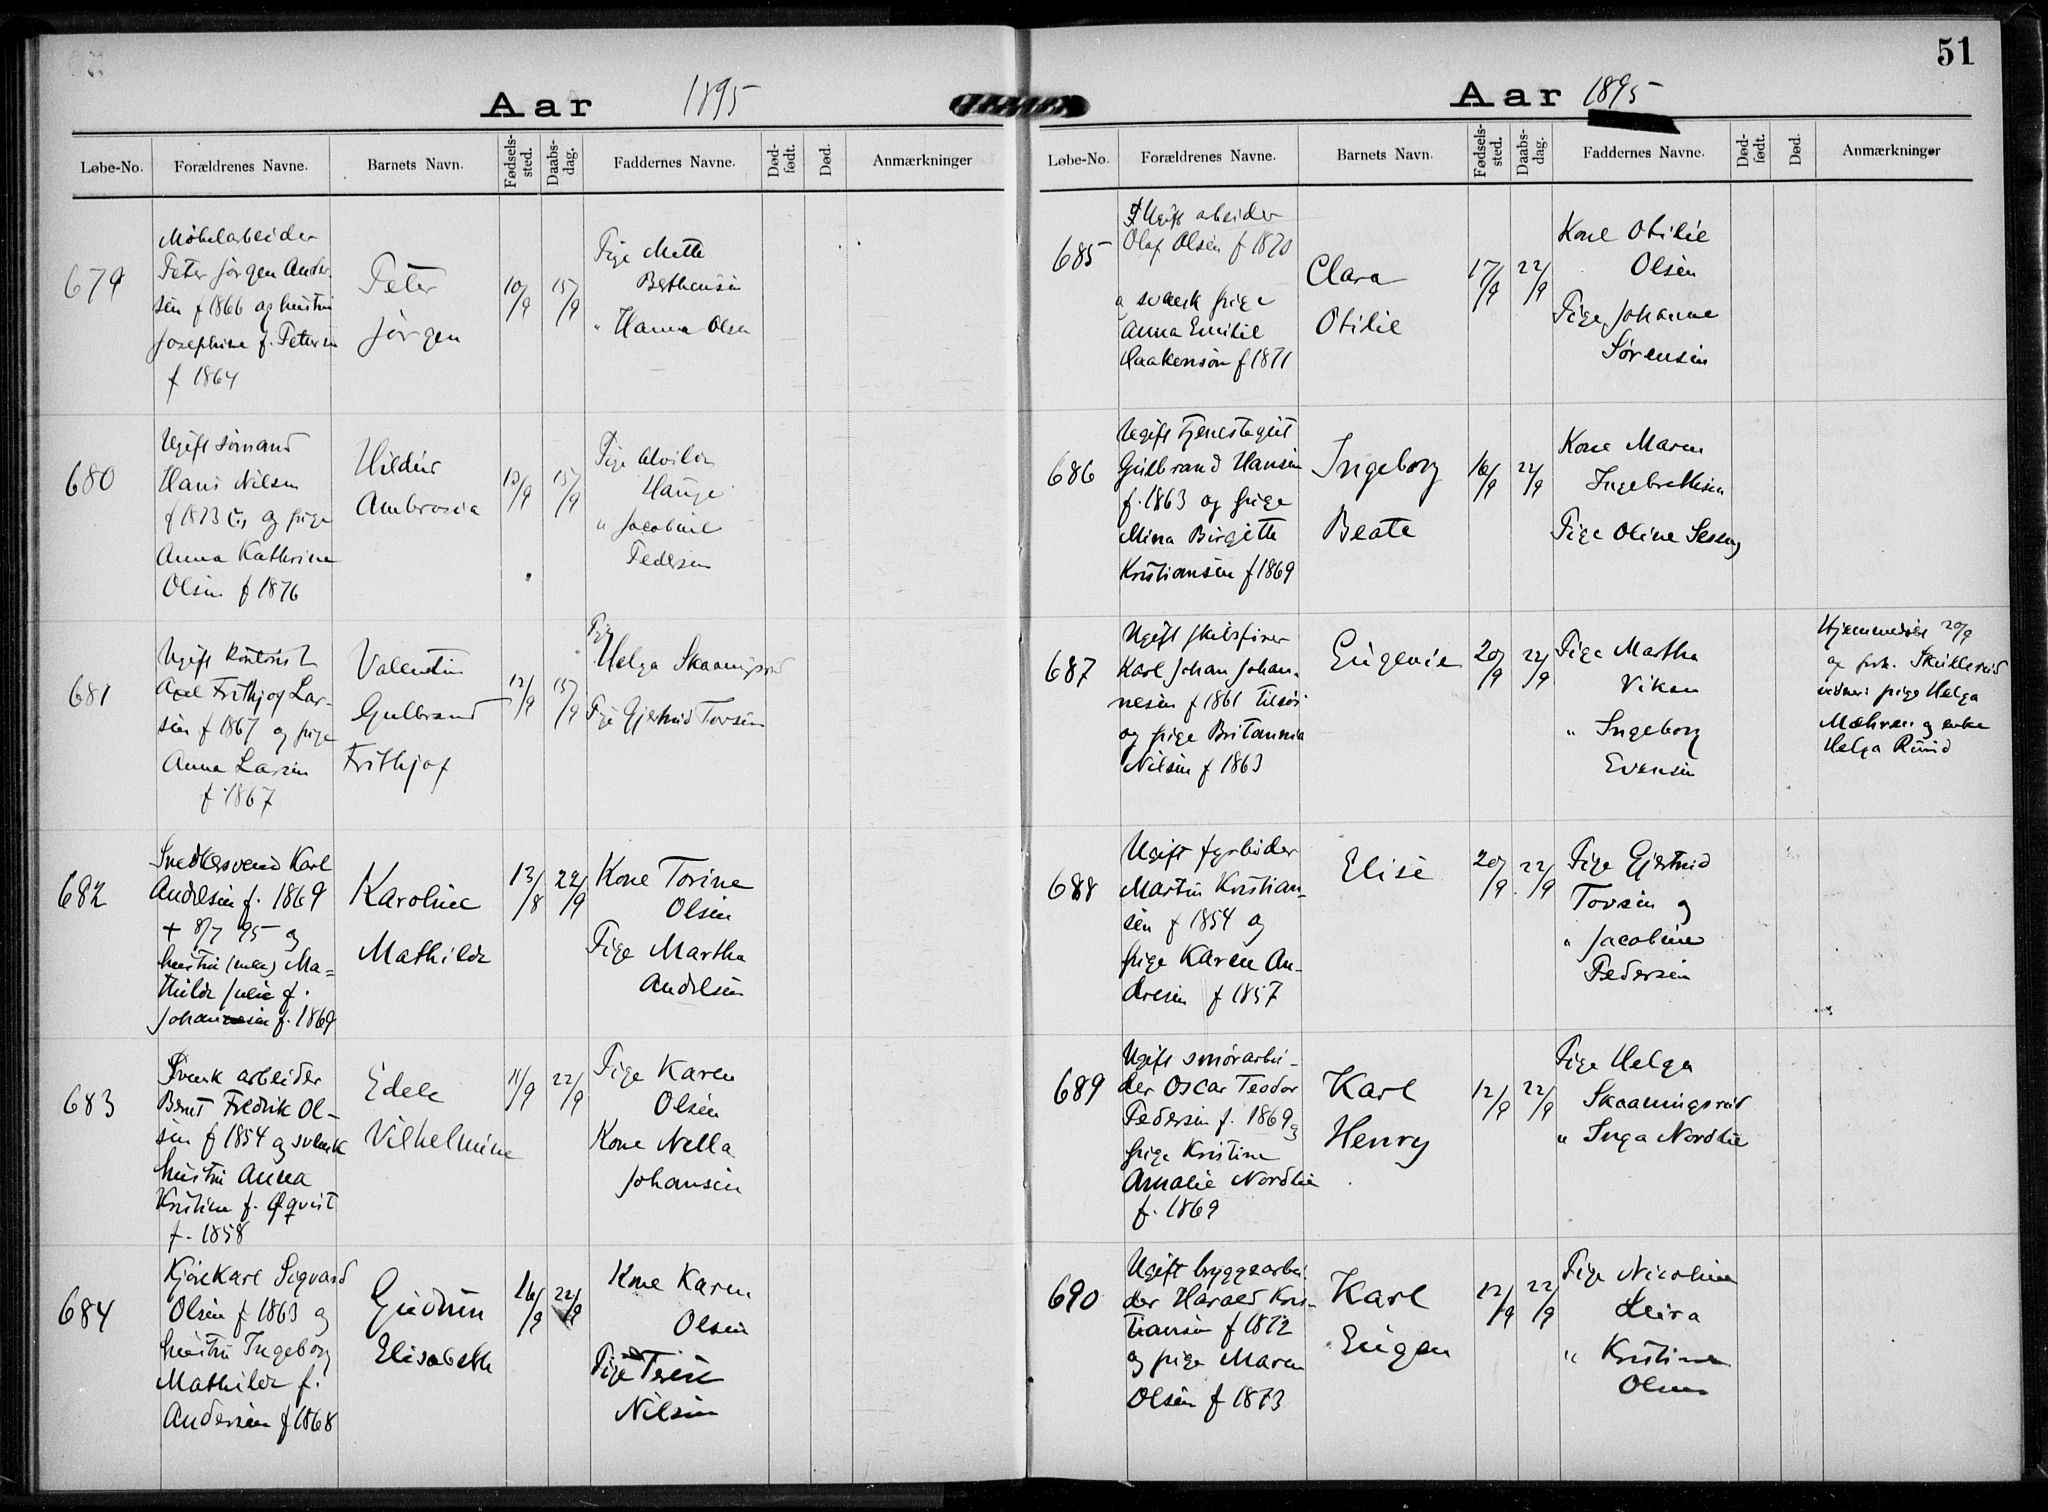 Aar 1895
Løbe-No. Forældrenes Navne. Barnets Navn. Fødsels-sted. Daabs-dag. Faddernes Navne. Død-født. Død. Anmærkninger
679
Møbelarbeider
Peter Jørgen Ander-
sen f 1866 og hustru
Josephine f. Petersen
f 1864
Peter
Jørgen
10/9
15/9
Pige Mette
Berthensen
" Hanna Olsen
680
Ugift sømand
Hans Nilsen
f 1873 og pige
Anna Kathrine
Olsen f 1876
Hildur
Ambrosia
13/9
15/9
Pige Alvilda
Hauge
" Jacobine
Pedersen
681
Ugift kontorist
Axel Frithjog Lar-
sen f 1867 og pige
Anna Larsen
f 1867
Valentin
Gulbrand
Frithjof
12/9
15/9
Pige
Helga Skaaningsrud
Pige Gjertrud Torsen
682
Snedkersvend Karl
Andelsen f. 1869
+ 8/7 95 og
hustru (enke) Ma-
thilde Julie f.
Johannesen f. 1869
Karoline
Mathilde
13/8
22/9
Kone Torine
Olsen
Pige Martha
Andelsen
683
Svensk arbeider
Bernt Fredrik Ol-
sen f 1854 og svensk
hustru Anna
Kristine f. Øqvist
f. 1858
Edele
Vilhelmine
11/9
22/9
Pige Karen
Olsen
Kone Nella
Johansen
684
Kjørekarl Sigvard
Olsen f 1863 og
hustru Ingeborg
Mathilde f.
Andersen f 1868
Gudrun
Elisabeth
16/9
22/9
Kone Karen
Olsen
Pige Terese
Nilsen
51
Aar 1895
Løbe-No. Forældrenes Navne. Barnets Navn. Fødsels-sted. Daabs-dag. Faddernes Navne. Død-født. Død. Anmærkninger
685
Ugift arbeider
Olaf Olsen f 1870
og svensk pige
Anna Emilie
Haakenson f 1871
Clara
Otilie
17/9
22/9
Kone Otilie
Olsen
Pige Johanne
Sørensen
686
Ugift tjenestegut
Gulbrand Hansen
f. 1863 og pige
Mina Birgitte
Kristiansen f 1869
Ingeborg
Beate
16/9
22/9
Kone Maren
Ingebrethsen
Pige Oline Seseng
687
Ugift skibsfører
Karl Johan Johan-
nesen f 1861 tilsøs
og pige Britannia
Nilsen f 1863
Eugenie
20/9
22/9
Pige Martha
Viken
" Ingeborg
Evensen
Hjemmedøbt 20/9
af frk. Skullerud
vidner: pige Helga
Mæhren og enke
Helga Ruud
688
Ugift fyrbøder
Martin Kristian-
sen f 1854 og
pige Karen An-
dresen f 1857
Elise
20/9
22/9
Pige Gjertrud
Torsen og
" Jacobine
Pedersen
689
Ugift smørarbei-
der Oscar Teodor
Pedersen f. 1869 og
pige Kristine
Amalie Nordlie
f. 1869
Karl
Henry
12/9
22/9
Pige Helga
Skaaningsrud
" Inga Nordlie
690
Ugift bryggearbei-
der Harald Kris-
tiansen f 1872
og pige Maren
Olsen f 1873
Karl
Eugen
12/9
22/9
Pige Nicoline
Leira
" Kristine
Olsen